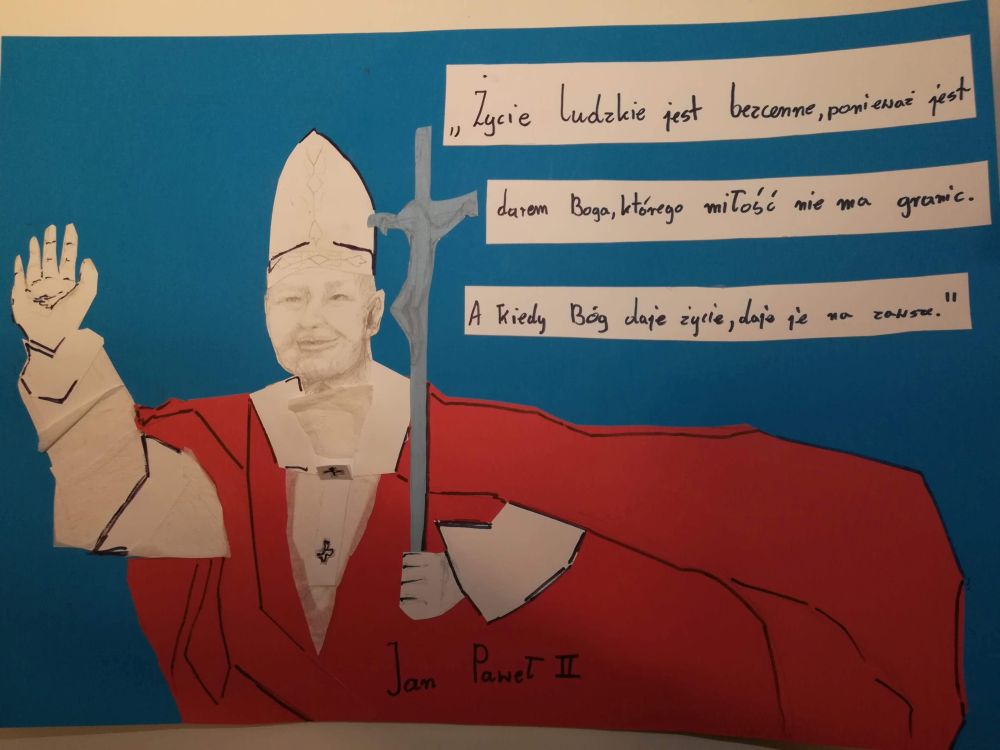 „Życie ludzkie jest bezcenne, ponieważ jest
darem Boga, którego miłość nie ma granic.
A kiedy Bóg daje życie, daje je na zawsze."
Jan Paweł II